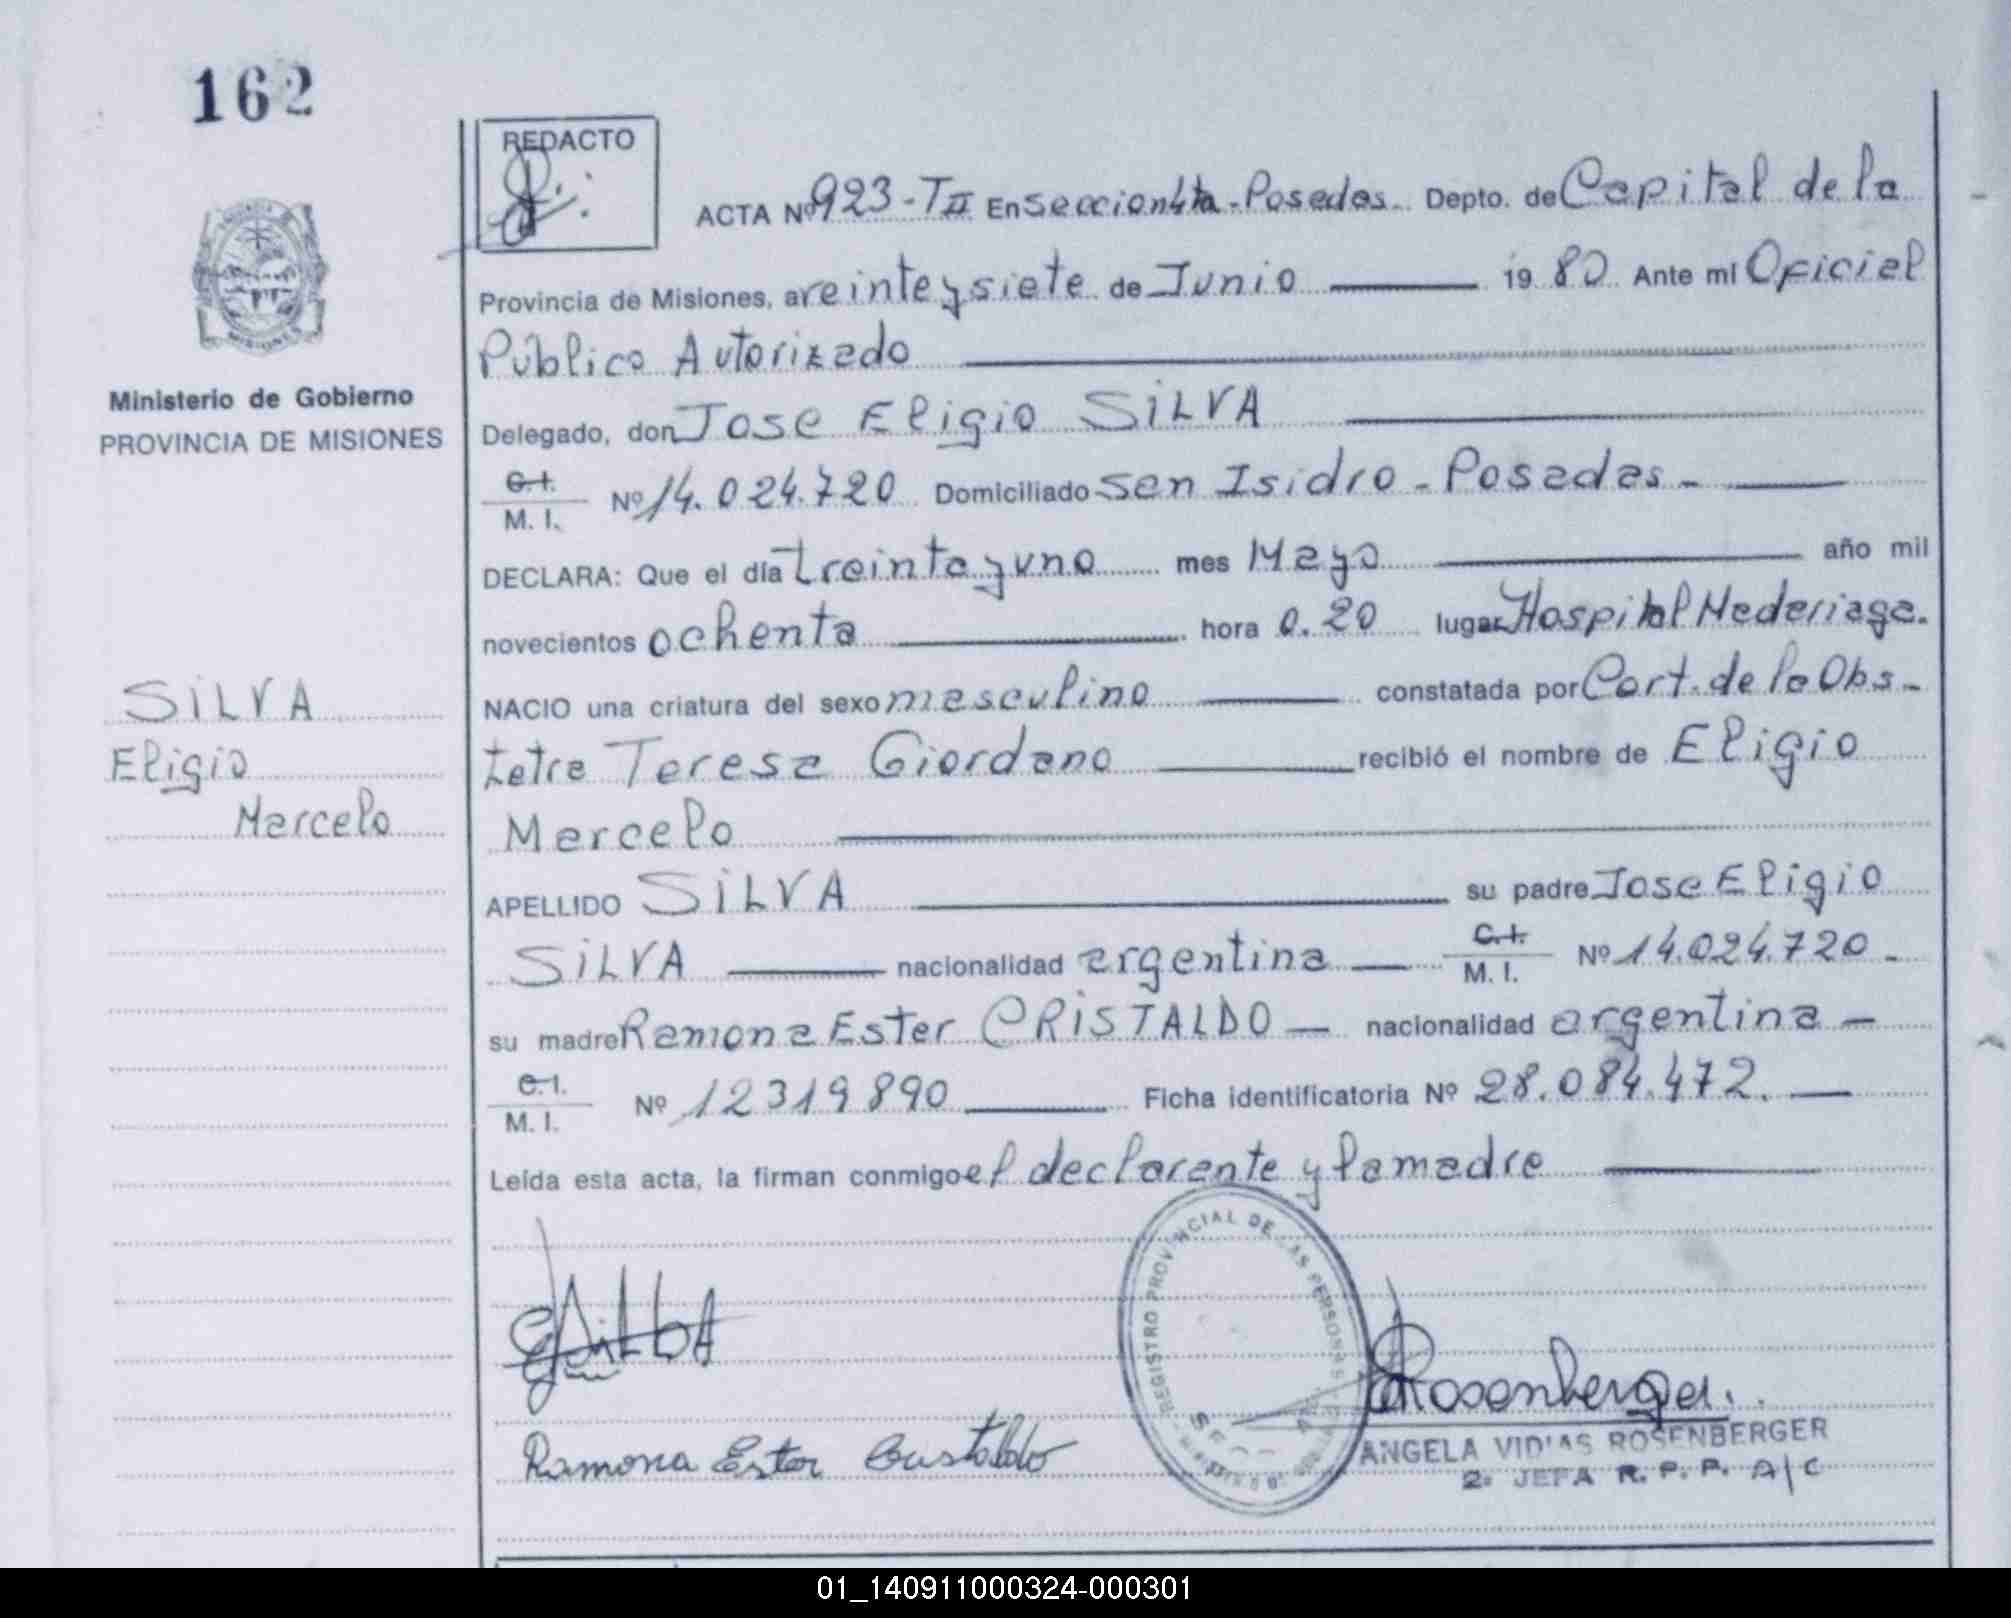 162
REDACTO
ACTA Nº 923 - T II En Seccion 4ta - Posadas Depto. de Capital de la
Provincia de Misiones, a veinte y siete de Junio 19 80 Ante mí Oficial
Público Autorizado
Ministerio de Gobierno
PROVINCIA DE MISIONES
Delegado, don Jose Eligio SILVA
C.I.
M. I. Nº 14.024.720 Domiciliado San Isidro - Posadas -
DECLARA: Que el día treinta y uno mes Mayo año mil
novecientos ochenta hora 0.20 lugar Hospital Madariaga.
SILVA
Eligio
Marcelo
NACIO una criatura del sexo masculino constatada por Cert. de la Obs-
tetra Teresa Giordano recibió el nombre de Eligio
Marcelo
APELLIDO SILVA su padre Jose Eligio
SILVA nacionalidad argentina C.I.
M. I. Nº 14.024.720 -
su madre Ramona Ester CRISTALDO - nacionalidad argentina -
C.I.
M. I. Nº 12319890 Ficha identificatoria Nº 28.084.472. -
Leída esta acta, la firman conmigo el declarante y la madre
REGISTRO PROVINCIAL DE LAS PERSONAS
Rosenberger
Ramona Ester Cristaldo
ANGELA VIDIAS ROSENBERGER
2ª JEFA R. P. P. A/C
01_140911000324-000301